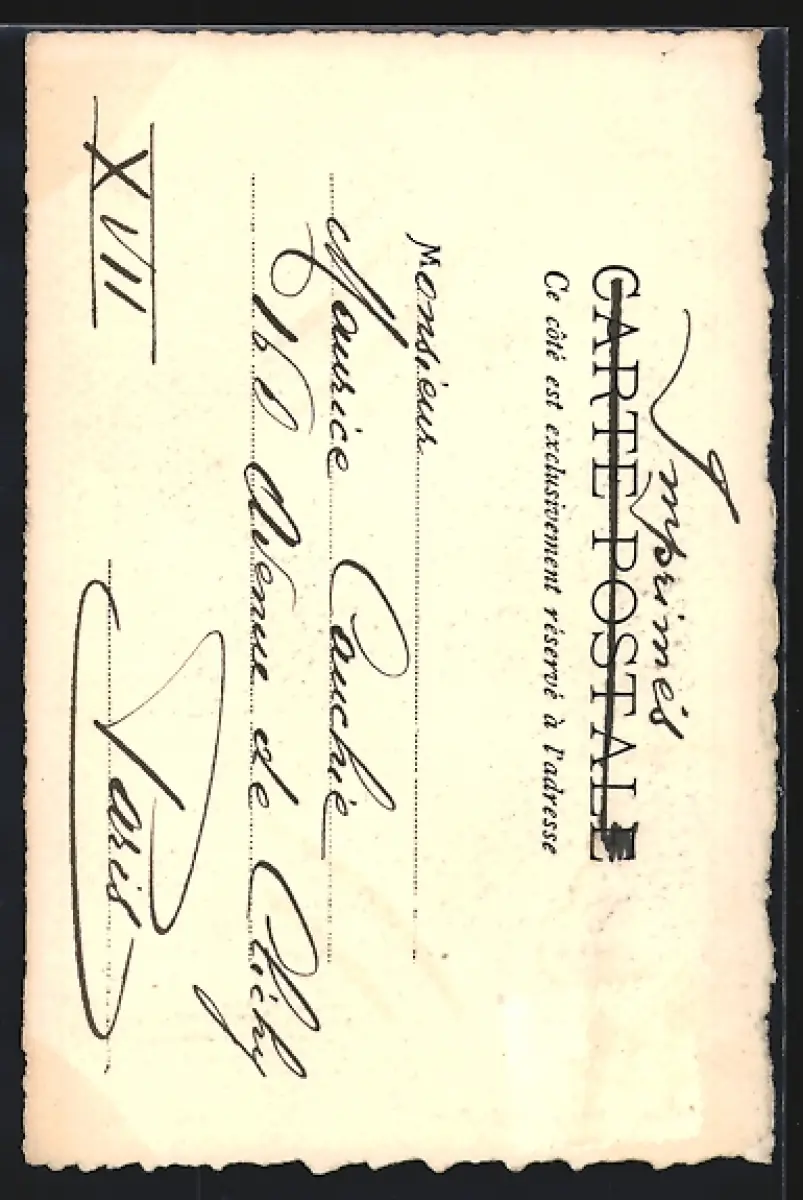 Imprimés
CARTE POSTALE
Ce côté est exclusivement réservé à l'adresse
Monsieur
Maurice Cauchie
160 Avenue de Clichy
Paris
XVII